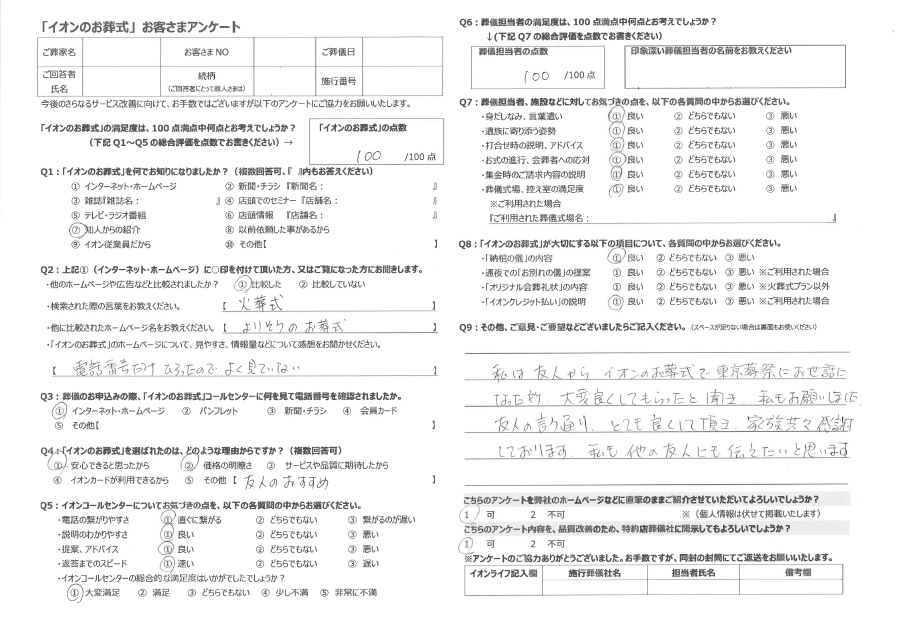 「イオンのお葬式」お客さまアンケート
ご葬家名 お客さまNO ご葬儀日
ご回答者氏名 続柄(ご回答者にとって故人さまは) 施行番号
今後のさらなるサービス改善に向けて、お手数ではございますが以下のアンケートにご協力をお願いいたします。
「イオンのお葬式」の満足度は、100点満点中何点とお考えでしょうか?
(下記Q1~Q5の総合評価を点数でお書きください)→
「イオンのお葬式」の点数
100 /100点
Q1:「イオンのお葬式」を何でお知りになりましたか?(複数回答可、『 』内もお答えください)
① インターネット・ホームページ ② 新聞・チラシ『新聞名: 』
③ 雑誌『雑誌名: 』 ④ 店頭でのセミナー『店舗名: 』
⑤ テレビ・ラジオ番組 ⑥ 店頭情報 『店舗名: 』
⑦ 知人からの紹介 ⑧ 以前依頼した事があるから
⑨ イオン従業員だから ⑩ その他【 】
Q2:上記①(インターネット・ホームページ)に○印を付けて頂いた方、又はご覧になった方にお聞きします。
・他のホームページや広告などと比較されましたか? ① 比較した ② 比較していない
・検索された際の言葉をお教えください。 【 火葬式 】
・他に比較されたホームページ名をお教えください。【 よりそうのお葬式 】
・「イオンのお葬式」のホームページについて、見やすさ、情報量などについて感想をお聞かせください。
【 電話番号だけひろったのでよく見ていない 】
Q3:葬儀のお申込みの際、「イオンのお葬式」コールセンターに何を見て電話番号を確認されましたか。
① インターネット・ホームページ ② パンフレット ③ 新聞・チラシ ④ 会員カード
⑤ その他【 】
Q4:「イオンのお葬式」を選ばれたのは、どのような理由からですか?(複数回答可)
① 安心できると思ったから ② 価格の明瞭さ ③ サービスや品質に期待したから
④ イオンカードが利用できるから ⑤ その他【 友人のおすすめ 】
Q5:イオンコールセンターについてお気づきの点を、以下の各質問の中からお選びください。
・電話の繋がりやすさ ① 直ぐに繋がる ② どちらでもない ③ 繋がるのが遅い
・説明のわかりやすさ ① 良い ② どちらでもない ③ 悪い
・提案、アドバイス ① 良い ② どちらでもない ③ 悪い
・返答までのスピード ① 速い ② どちらでもない ③ 遅い
・イオンコールセンターの総合的な満足度はいかがでしたでしょうか?
① 大変満足 ② 満足 ③ どちらでもない ④ 少し不満 ⑤ 非常に不満
Q6:葬儀担当者の満足度は、100点満点中何点とお考えでしょうか?
↓(下記Q7の総合評価を点数でお書きください)
葬儀担当者の点数 印象深い葬儀担当者の名前をお教えください
100 /100点
Q7:葬儀担当者、施設などに対してお気づきの点を、以下の各質問の中からお選びください。
・身だしなみ、言葉遣い ① 良い ② どちらでもない ③ 悪い
・遺族に寄り添う姿勢 ① 良い ② どちらでもない ③ 悪い
・打合せ時の説明、アドバイス ① 良い ② どちらでもない ③ 悪い
・お式の進行、会葬者への応対 ① 良い ② どちらでもない ③ 悪い
・集金時のご請求内容の説明 ① 良い ② どちらでもない ③ 悪い
・葬儀式場、控え室の満足度 ① 良い ② どちらでもない ③ 悪い
※ご利用された場合
『ご利用された葬儀式場名: 』
Q8:「イオンのお葬式」が大切にする以下の項目について、各質問の中からお選びください。
・「納棺の儀」の内容 ① 良い ② どちらでもない ③ 悪い
・通夜での「お別れの儀」の提案 ① 良い ② どちらでもない ③ 悪い ※ご利用された場合
・「オリジナル会葬礼状」の内容 ① 良い ② どちらでもない ③ 悪い ※火葬式プラン以外
・「イオンクレジット払い」の説明 ① 良い ② どちらでもない ③ 悪い ※ご利用された場合
Q9:その他、ご意見・ご要望などございましたらご記入ください。(スペースが足りない場合は裏面もお使いください)
私は友人からイオンのお葬式で東京葬祭にお世話に
なため、大変良くしてもらったと聞き、私もお願いしました
友人の言う通り、とても良くして頂き、家族共々感謝
しております。私も他の友人にも伝えたいと思います
こちらのアンケートを弊社のホームページなどに直筆のままご紹介させていただいてよろしいでしょうか?
1 可 2 不可 ※(個人情報は伏せて掲載いたします)
こちらのアンケート内容を、品質改善のため、特約店葬儀社に開示してもよろしいでしょうか?
1 可 2 不可
※アンケートのご協力ありがとうございました。お手数ですが、同封の封筒にてご返送をお願いいたします。
イオンライフ記入欄 施行葬儀社名 担当者氏名 備考欄